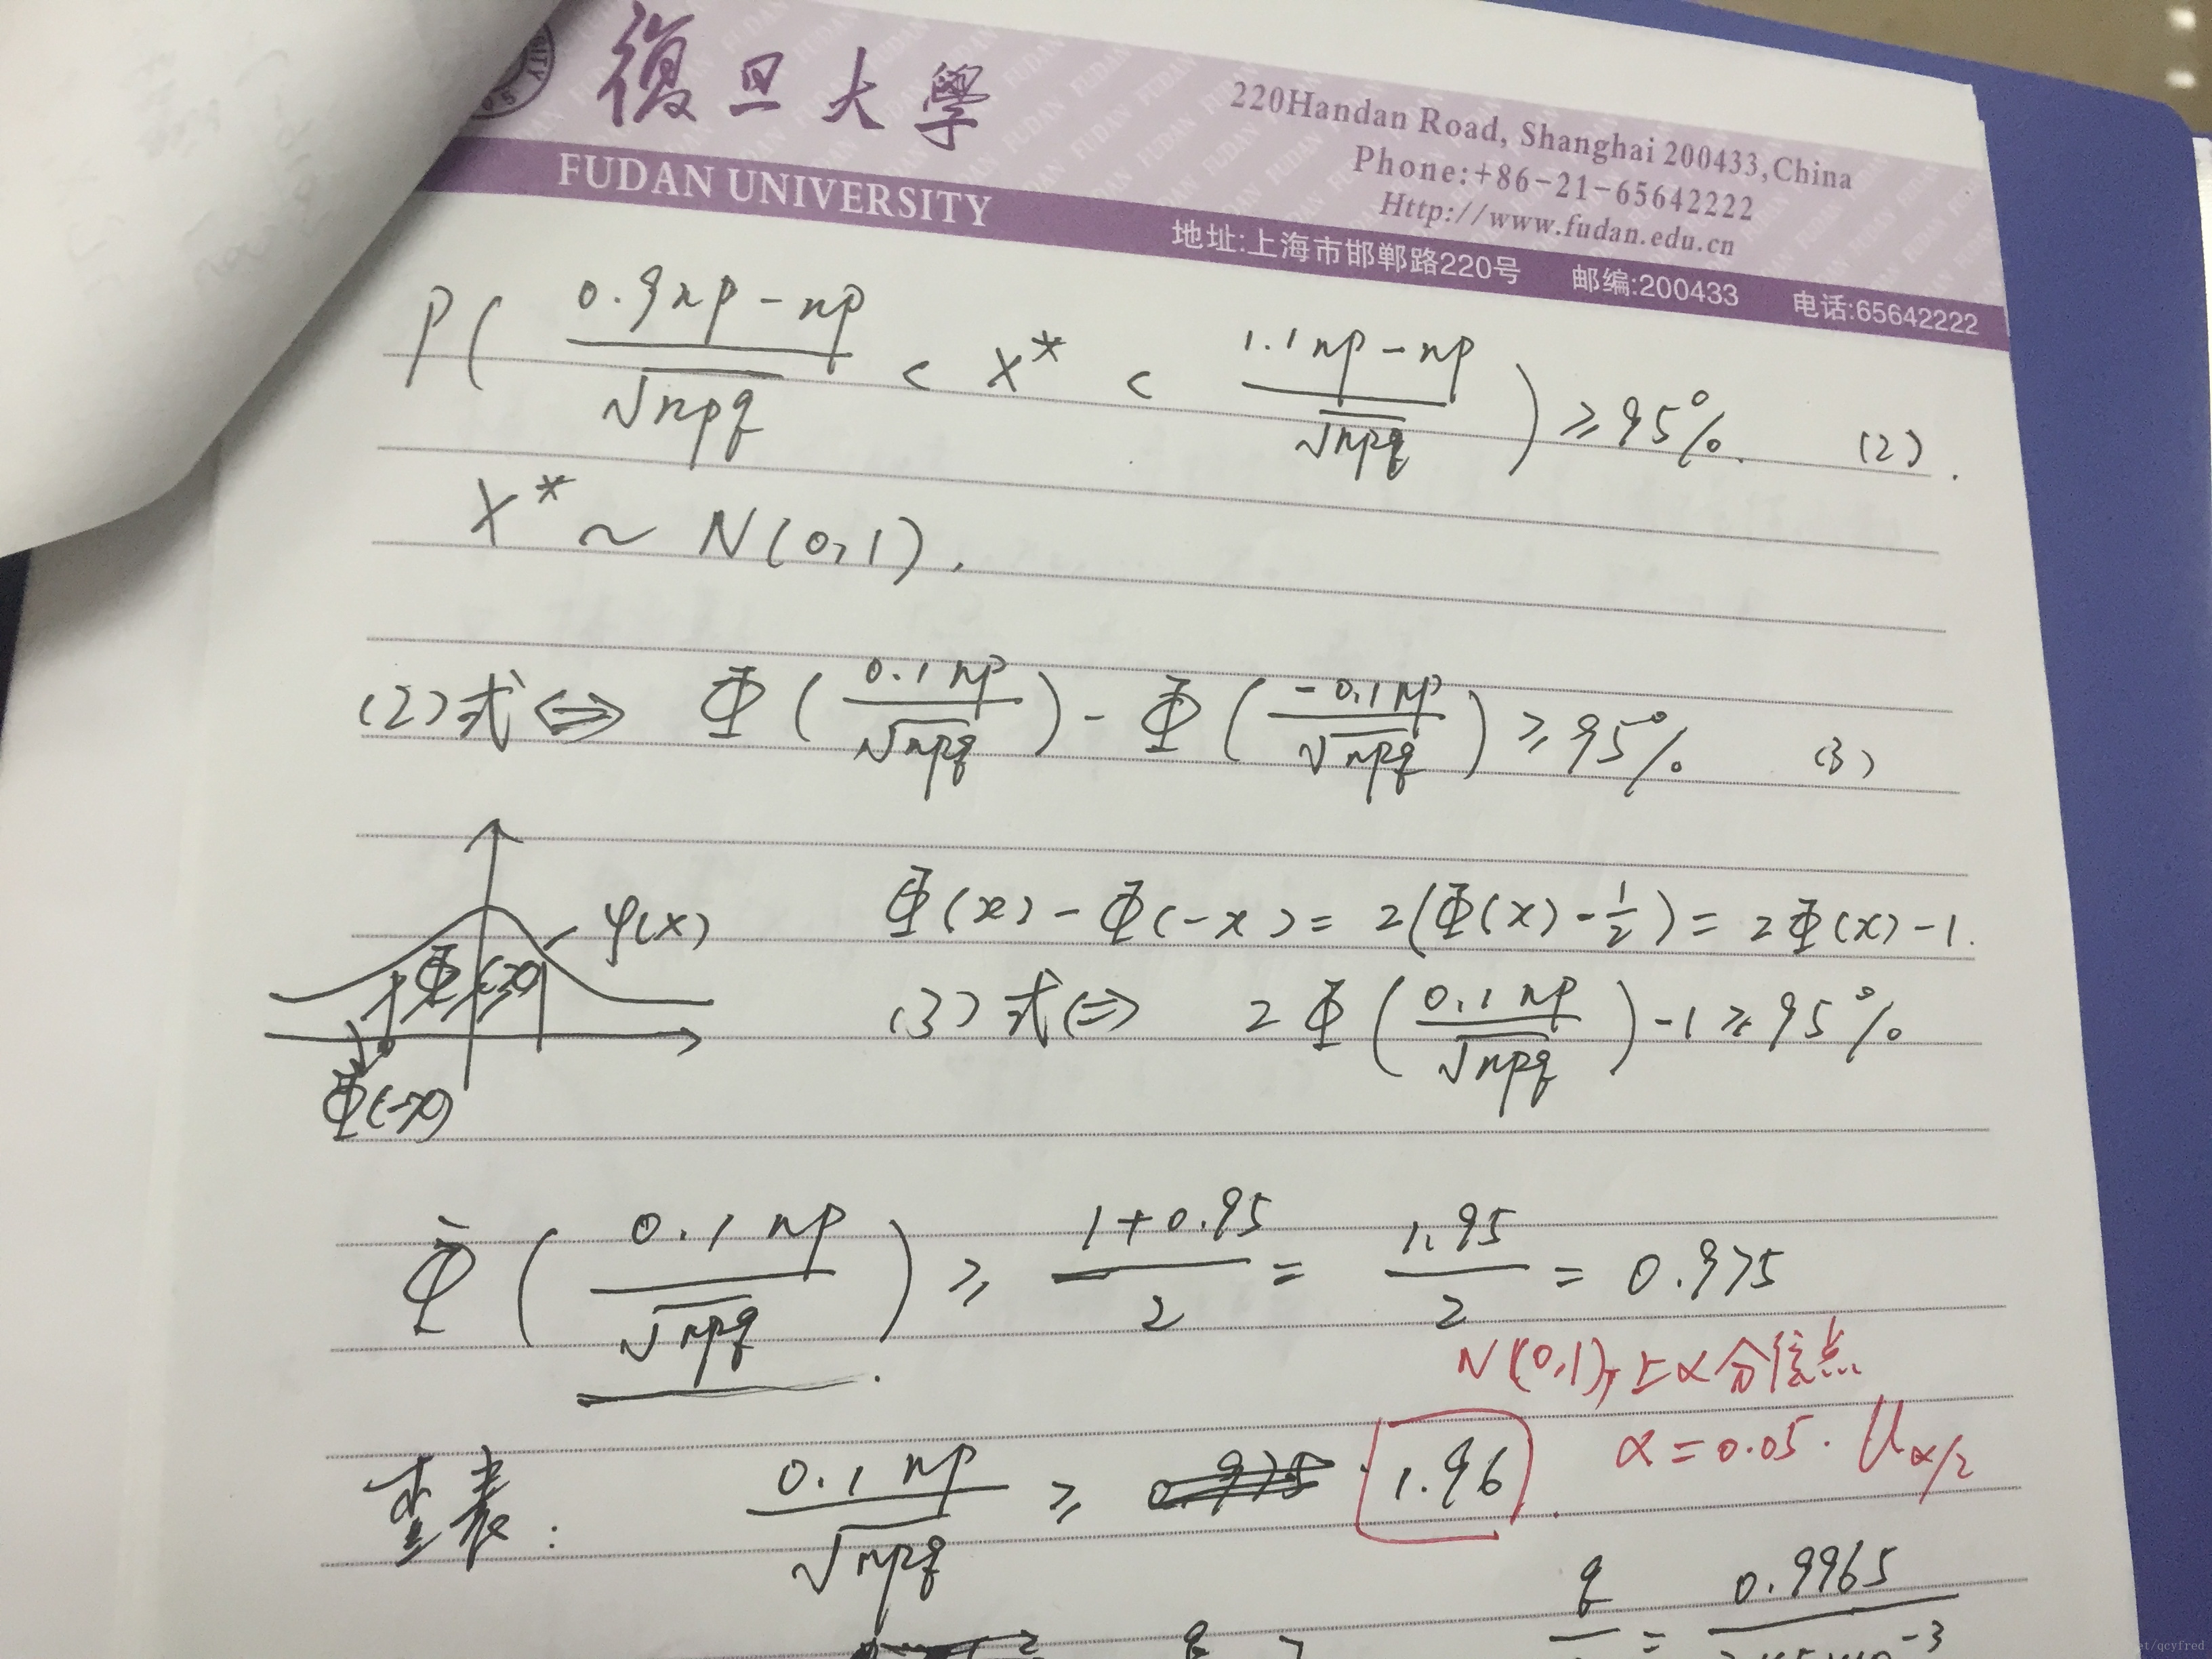 復旦大學
FUDAN UNIVERSITY
220Handan Road, Shanghai 200433,China
Phone:+86-21-65642222
Http://www.fudan.edu.cn
地址:上海市邯郸路220号 邮编:200433 电话:65642222
P( (0.9np - np)/√npq < X* < (1.1np - np)/√npq ) ≥ 95%. (2).
X* ~ N(0,1).
(2)式 ⇔ Φ(0.1np/√npq) - Φ(-0.1np/√npq) ≥ 95% (3)
φ(x)
Φ(x) - Φ(-x) = 2(Φ(x) - 1/2) = 2Φ(x) - 1.
(3)式 ⇔ 2Φ(0.1np/√npq) - 1 ≥ 95%
Φ(-x)
Φ(0.1np/√npq) ≥ (1+0.95)/2 = 1.95/2 = 0.975
N(0,1)上α分位点
查表: 0.1np/√npq ≥ 1.96. α=0.05. U α/2
q/ = 0.9965/ -3